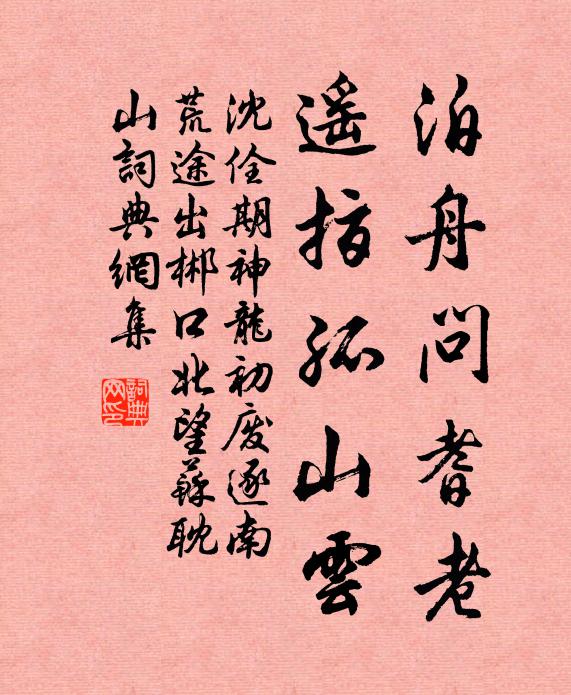 泊舟問耆老
遥指孤山雲
沈佺期神龍初廢逐南
荒途出郴口北望蘇耽
山詞典網集
詞典网印